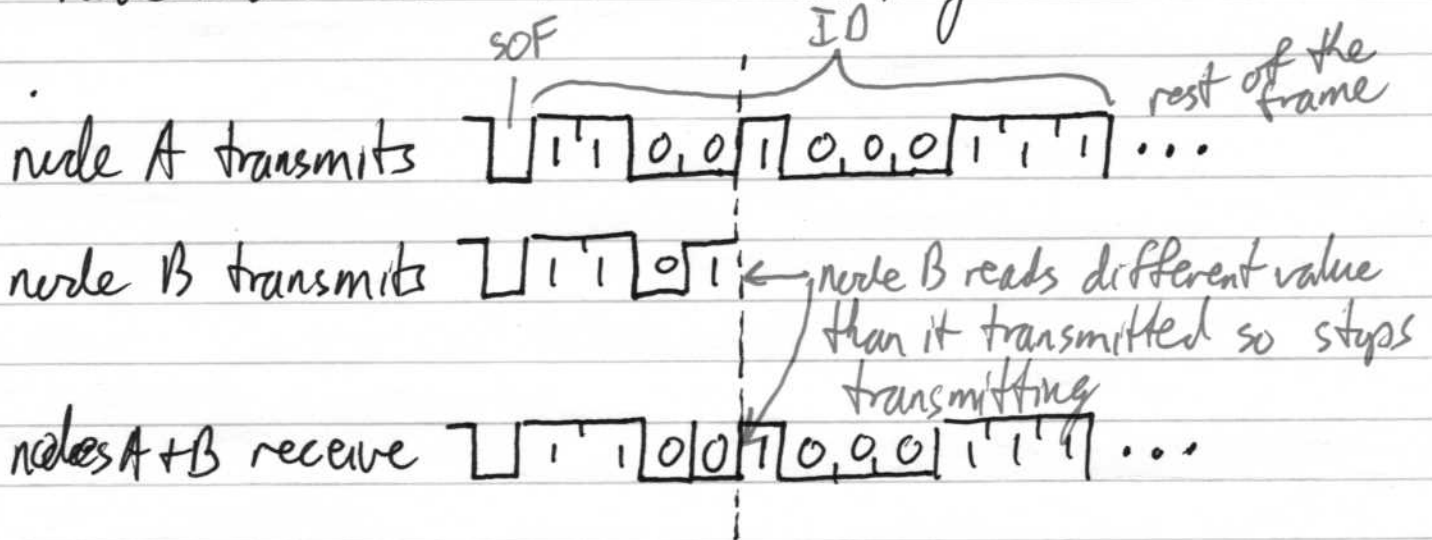 SOF
ID
rest of the
frame
node A transmits 1 1 0 0 1 0 0 0 1 1 1 ...
node B transmits 1 1 0 1
node B reads different value
than it transmitted so stops
transmitting
nodes A+B receive 1 1 0 0 1 0 0 0 1 1 1 ...